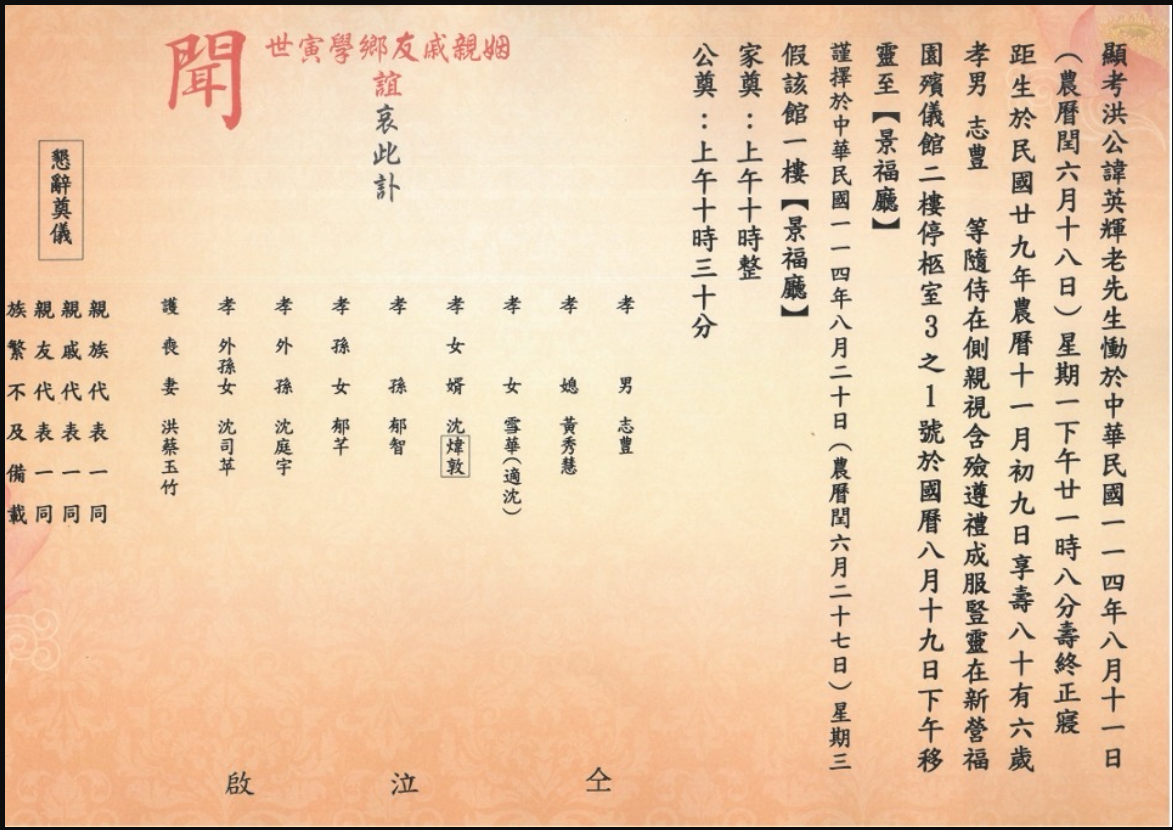 顯考洪公諱英輝老先生慟於中華民國一一四年八月十一日
（農曆閏六月十八日）星期一下午廿一時八分壽終正寢
距生於民國廿九年農曆十一月初九日享壽八十有六歲
孝男 志豊 等隨侍在側親視含殮遵禮成服豎靈在新營福
園殯儀館二樓停柩室3之1號於國曆八月十九日下午移
靈至【景福廳】
謹擇於中華民國一一四年八月二十日（農曆閏六月二十七日）星期三
假該館一樓【景福廳】
家奠：上午十時整
公奠：上午十時三十分
姻親戚友鄉學寅世
誼
哀此訃
聞
孝男 志豊
孝媳 黃秀慧
孝女 雪華（適沈）
孝女婿 沈煒敦
孝孫 郁智
孝孫女 郁芊
孝外孫 沈庭宇
孝外孫女 沈司苹
護喪妻 洪蔡玉竹
仝泣啟
懇辭奠儀
親族代表一同
親戚代表一同
親友代表一同
族繁不及備載